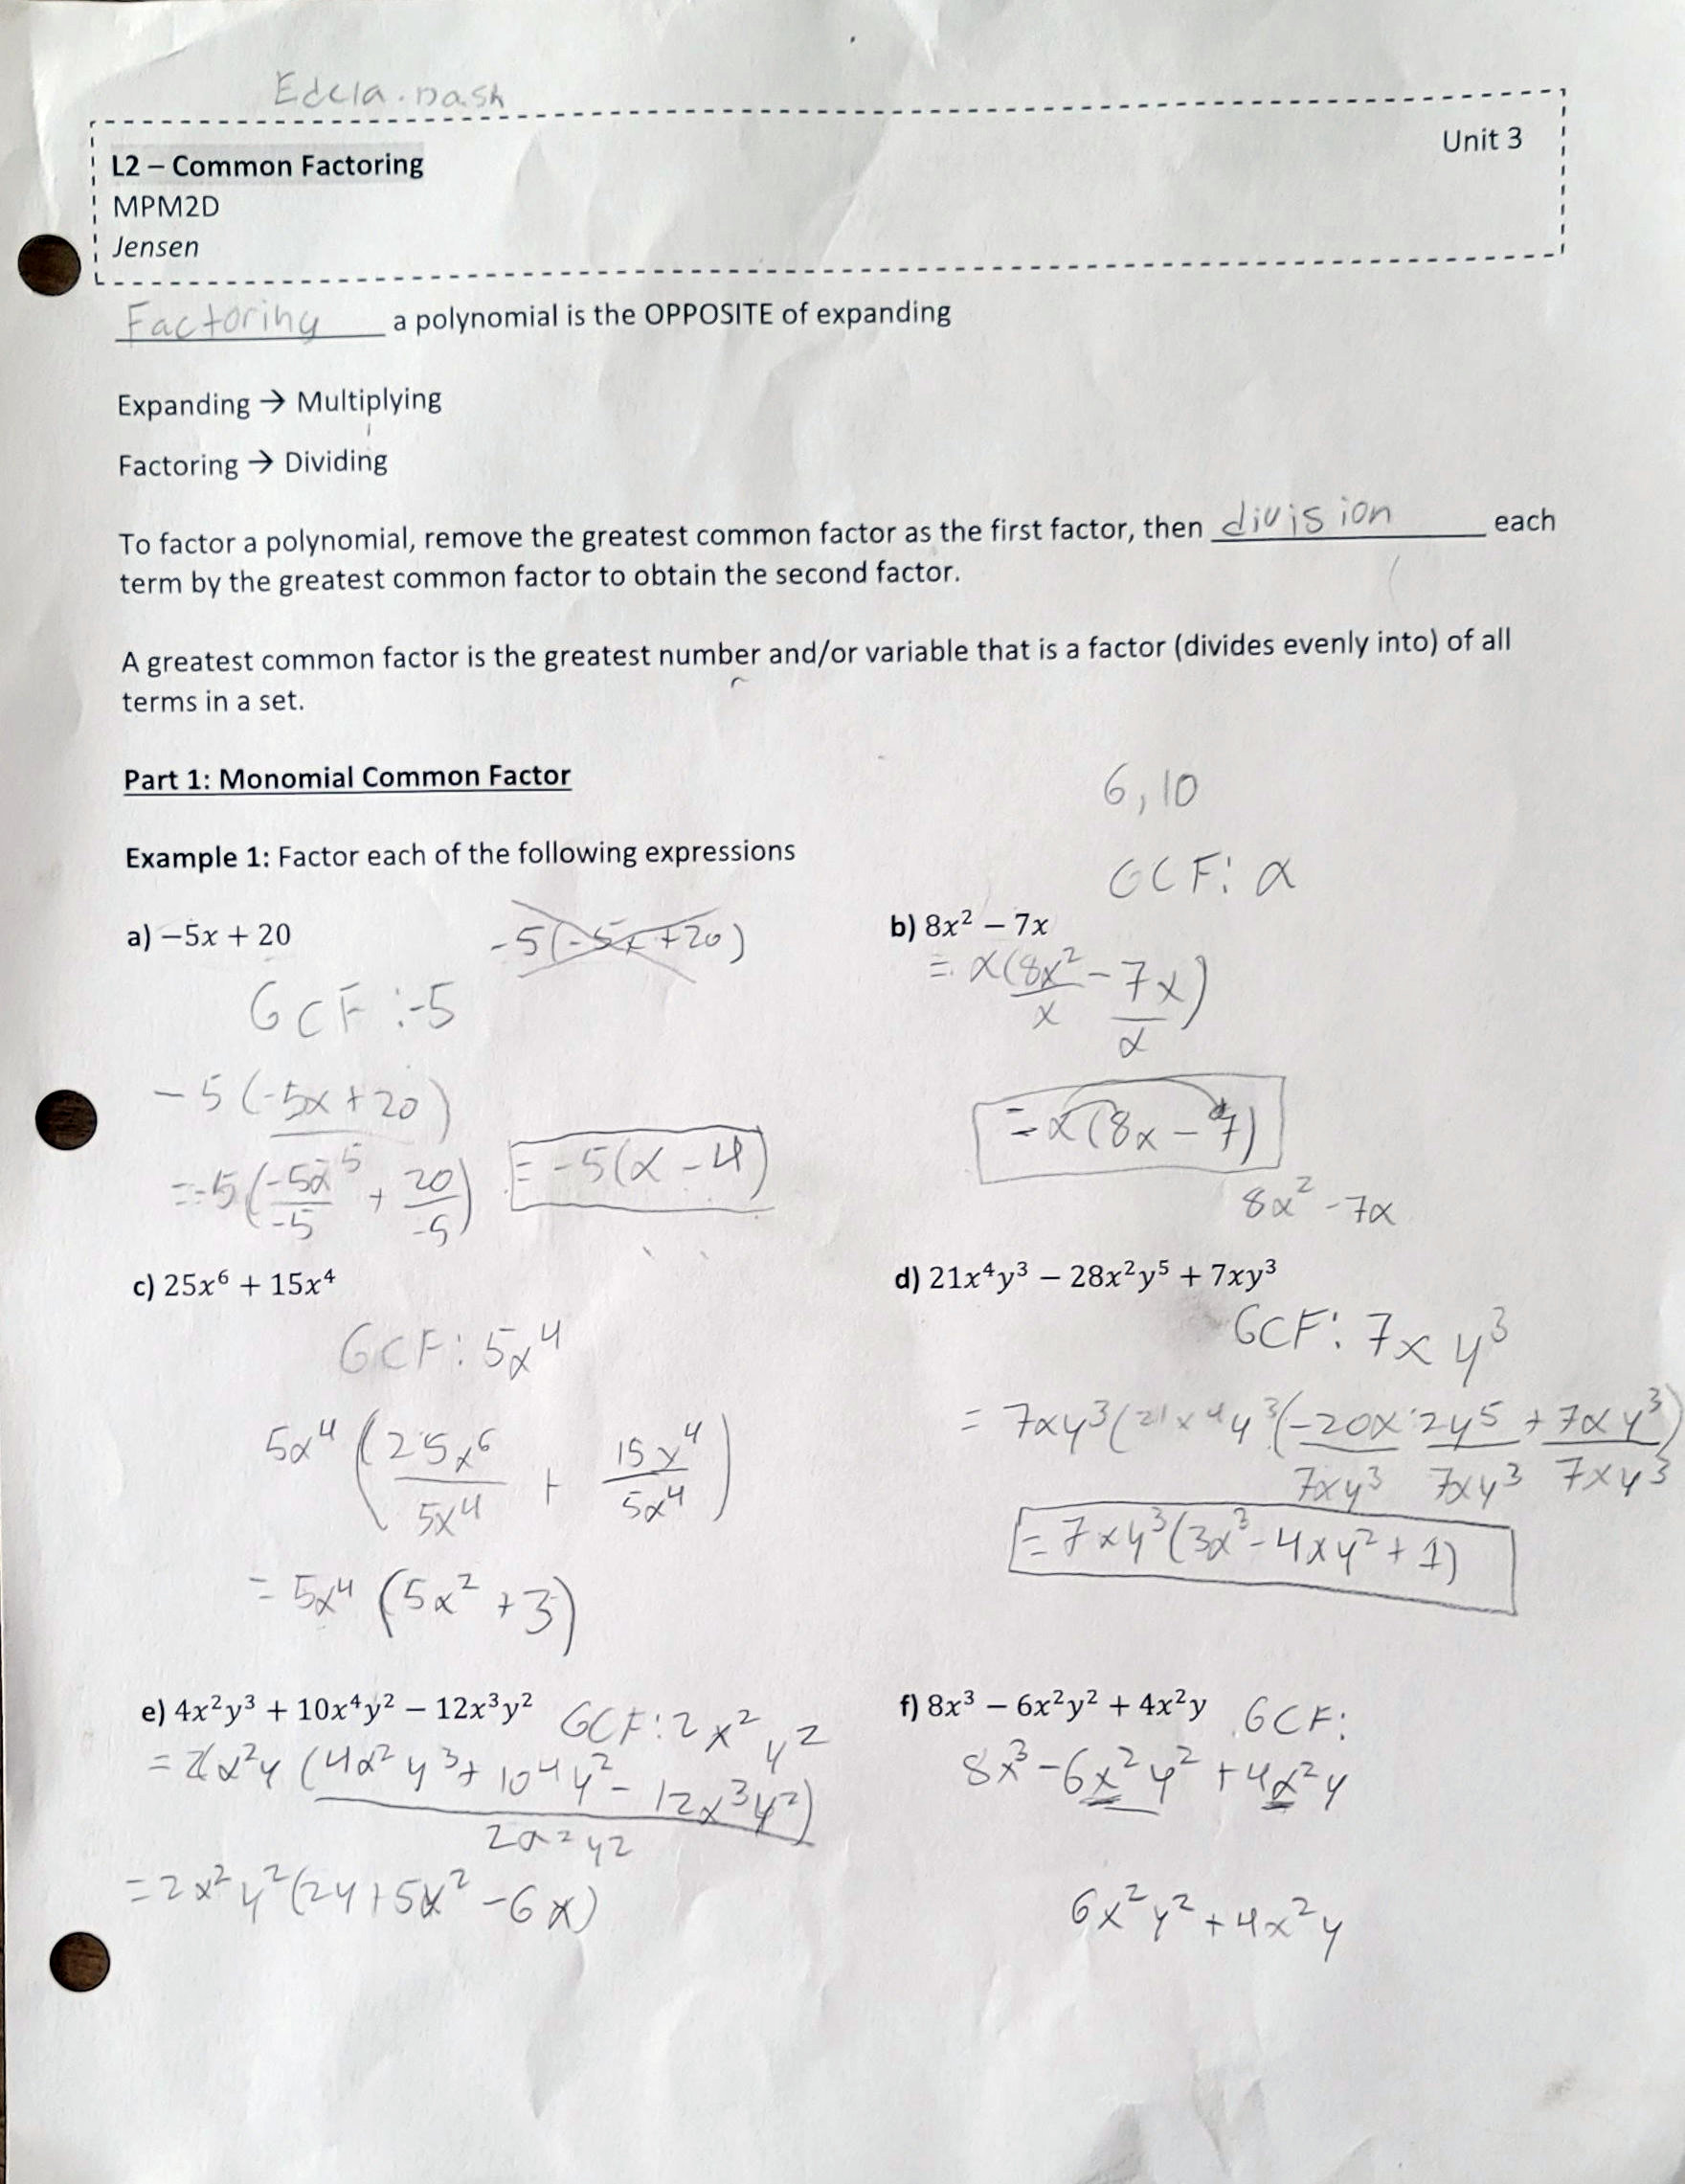 Edela.Dash
Unit 3
L2 – Common Factoring
MPM2D
Jensen
Factoring a polynomial is the OPPOSITE of expanding
Expanding → Multiplying
Factoring → Dividing
To factor a polynomial, remove the greatest common factor as the first factor, then division each
term by the greatest common factor to obtain the second factor.
A greatest common factor is the greatest number and/or variable that is a factor (divides evenly into) of all
terms in a set.
Part 1: Monomial Common Factor
6, 10
Example 1: Factor each of the following expressions
GCF: x
a) −5x + 20
-5(-5x+20)
GCF: -5
-5(-5x+20)
-5
=-5(-5x/-5 + 20/-5)
= -5(x-4)
b) 8x² − 7x
= x(8x²/x - 7x/x)
= x(8x-7)
8x²-7x
c) 25x⁶ + 15x⁴
GCF: 5x⁴
5x⁴(25x⁶/5x⁴ + 15x⁴/5x⁴)
= 5x⁴(5x²+3)
d) 21x⁴y³ − 28x²y⁵ + 7xy³
GCF: 7xy³
= 7xy³(21x⁴y³(-20x 2y5 + 7xy³)
7xy³ 7xy³ 7xy³
= 7xy³(3x³-4xy²+1)
e) 4x²y³ + 10x⁴y² − 12x³y²
GCF: 2x²y²
= 2x²y(4x²y³+10⁴y²-12x³y²)
2x²y2
=2x²y²(2y+5x²-6x)
f) 8x³ − 6x²y² + 4x²y
GCF:
8x³-6x²y²+4x²y
6x²y²+4x²y